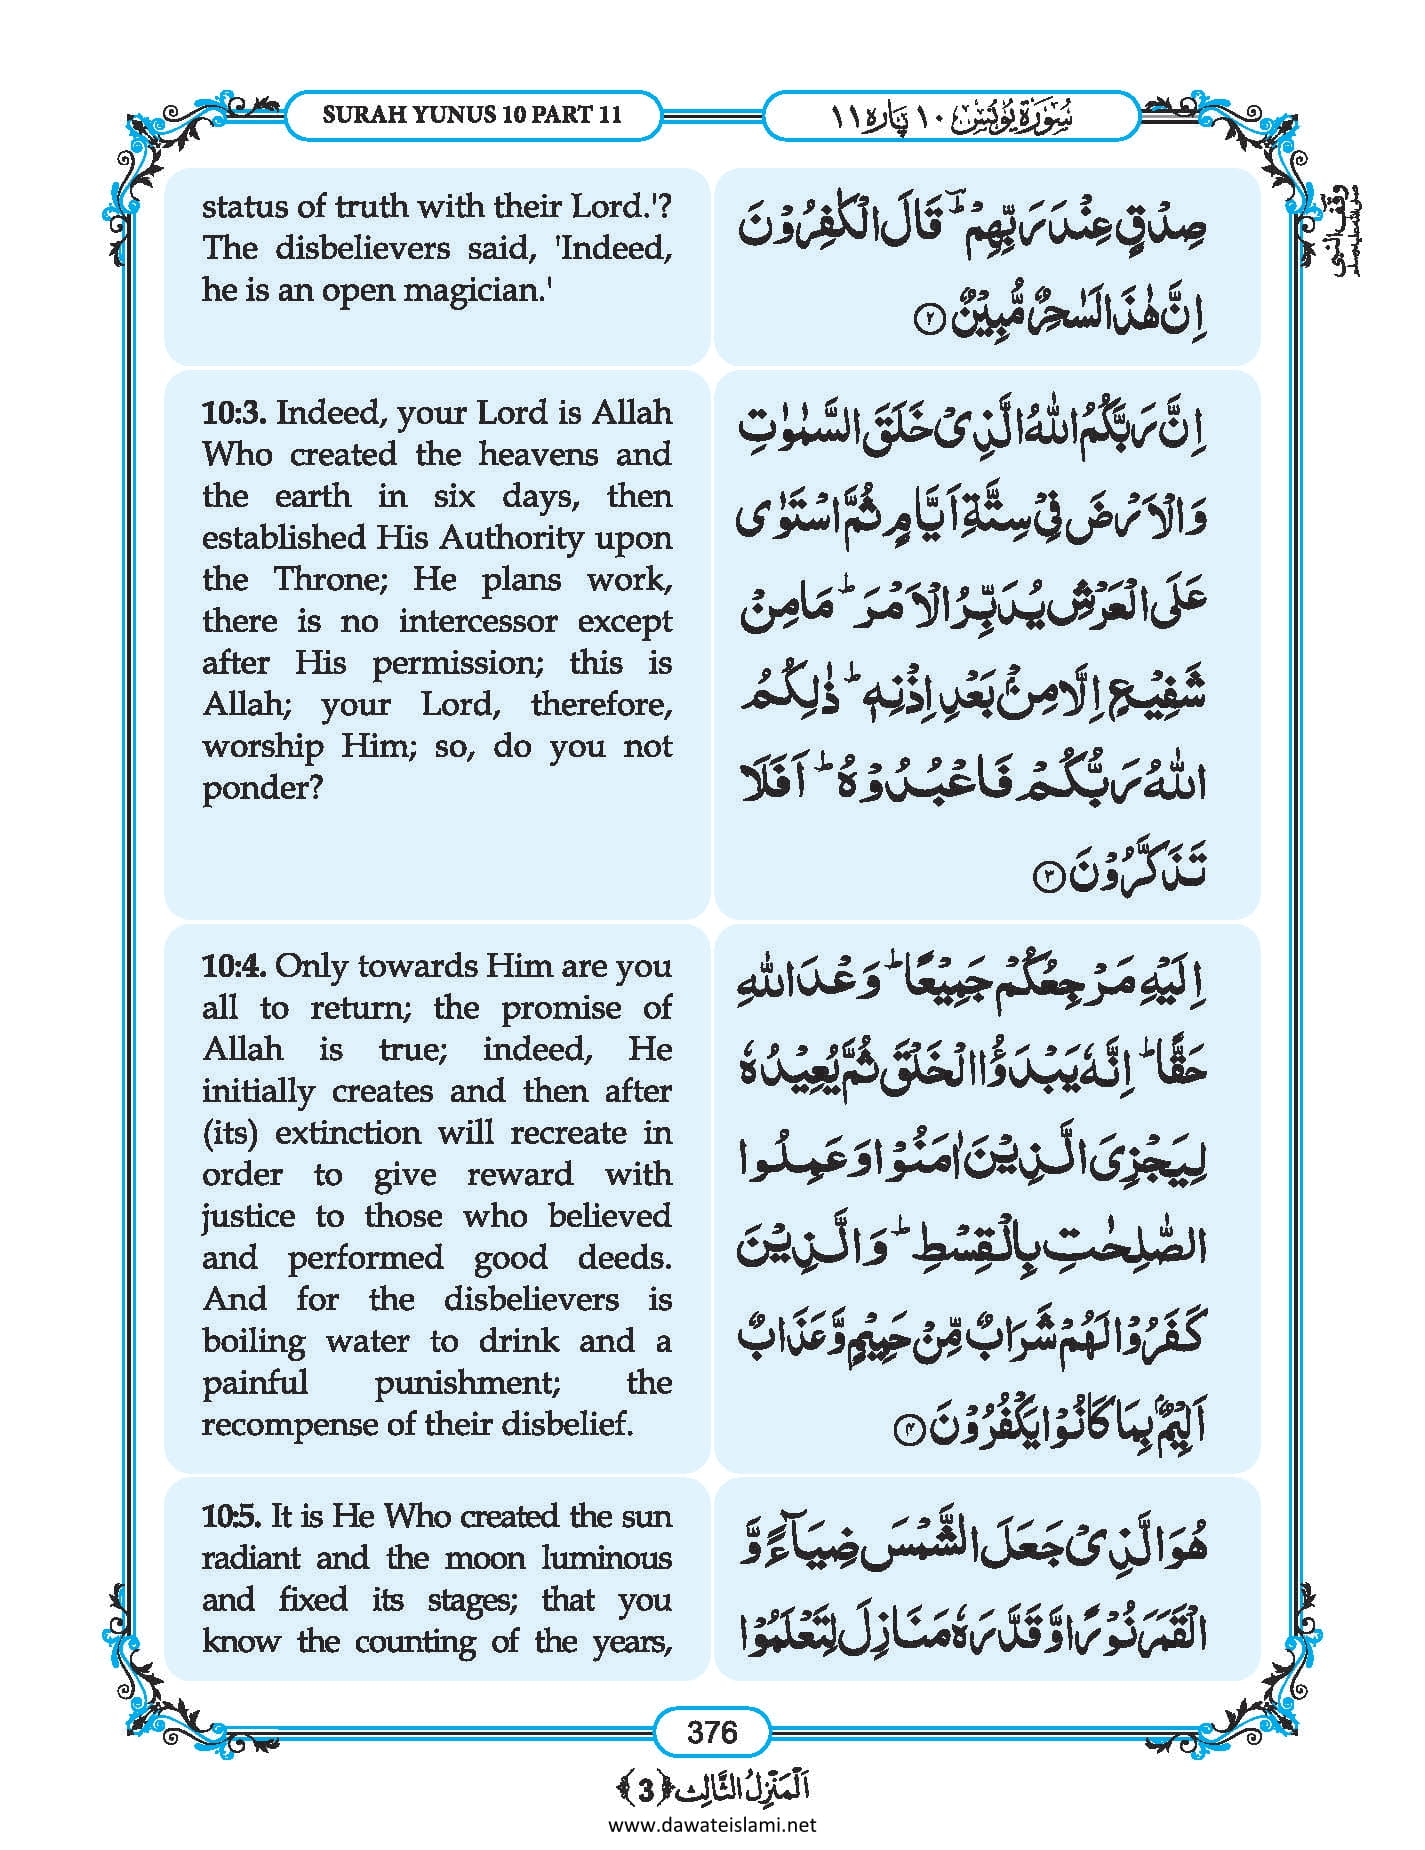 SURAH YUNUS 10 PART 11
سُوْرَةُ يُوْنُسَ ١٠ پَارَہ ١١
status of truth with their Lord.'?
The disbelievers said, 'Indeed,
he is an open magician.'
صِدْقٍ عِنْدَ رَبِّهِمْ ؕؔ قَالَ الْكٰفِرُوْنَ
اِنَّ هٰذَا لَسٰحِرٌ مُّبِيْنٌ ۝۲
10:3. Indeed, your Lord is Allah
Who created the heavens and
the earth in six days, then
established His Authority upon
the Throne; He plans work,
there is no intercessor except
after His permission; this is
Allah; your Lord, therefore,
worship Him; so, do you not
ponder?
اِنَّ رَبَّكُمُ اللّٰهُ الَّذِيْ خَلَقَ السَّمٰوٰتِ
وَالْاَرْضَ فِيْ سِتَّةِ اَيَّامٍ ثُمَّ اسْتَوٰى
عَلَى الْعَرْشِ يُدَبِّرُ الْاَمْرَ ؕ مَا مِنْ
شَفِيْعٍ اِلَّا مِنْۢ بَعْدِ اِذْنِهٖ ؕ ذٰلِكُمُ
اللّٰهُ رَبُّكُمْ فَاعْبُدُوْهُ ؕ اَفَلَا
تَذَكَّرُوْنَ ۝۳
10:4. Only towards Him are you
all to return; the promise of
Allah is true; indeed, He
initially creates and then after
(its) extinction will recreate in
order to give reward with
justice to those who believed
and performed good deeds.
And for the disbelievers is
boiling water to drink and a
painful punishment; the
recompense of their disbelief.
اِلَيْهِ مَرْجِعُكُمْ جَمِيْعًا ؕ وَعْدَ اللّٰهِ
حَقًّا ؕ اِنَّهٗ يَبْدَؤُا الْخَلْقَ ثُمَّ يُعِيْدُهٗ
لِيَجْزِيَ الَّذِيْنَ اٰمَنُوْا وَعَمِلُوا
الصّٰلِحٰتِ بِالْقِسْطِ ؕ وَالَّذِيْنَ
كَفَرُوْا لَهُمْ شَرَابٌ مِّنْ حَمِيْمٍ وَّعَذَابٌ
اَلِيْمٌۢ بِمَا كَانُوْا يَكْفُرُوْنَ ۝۴
10:5. It is He Who created the sun
radiant and the moon luminous
and fixed its stages; that you
know the counting of the years,
هُوَ الَّذِيْ جَعَلَ الشَّمْسَ ضِيَآءً وَّ
الْقَمَرَ نُوْرًا وَّقَدَّرَهٗ مَنَازِلَ لِتَعْلَمُوْا
وقف النبی
صلی اللہ علیہ وسلم
376
اَلْمَنْزِلُ الثَّالِث ﴿3﴾
www.dawateislami.net